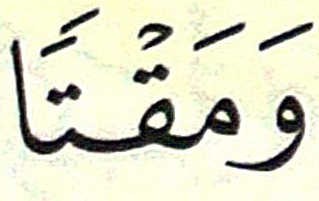 وَمَقْتَا